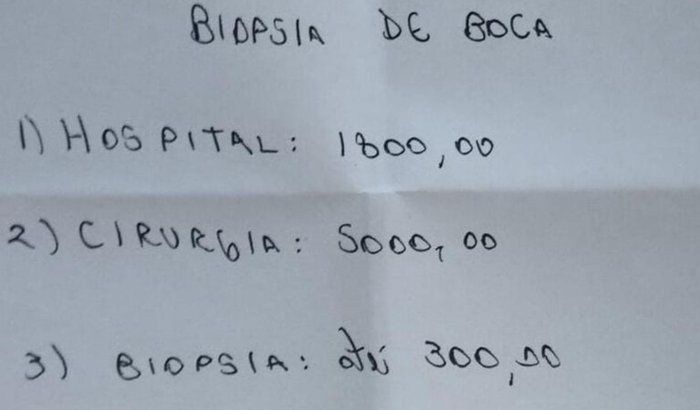 BIOPSIA DE BOCA
1) HOSPITAL: 1800,00
2) CIRURGIA: 5000,00
3) BIOPSIA: até 300,00